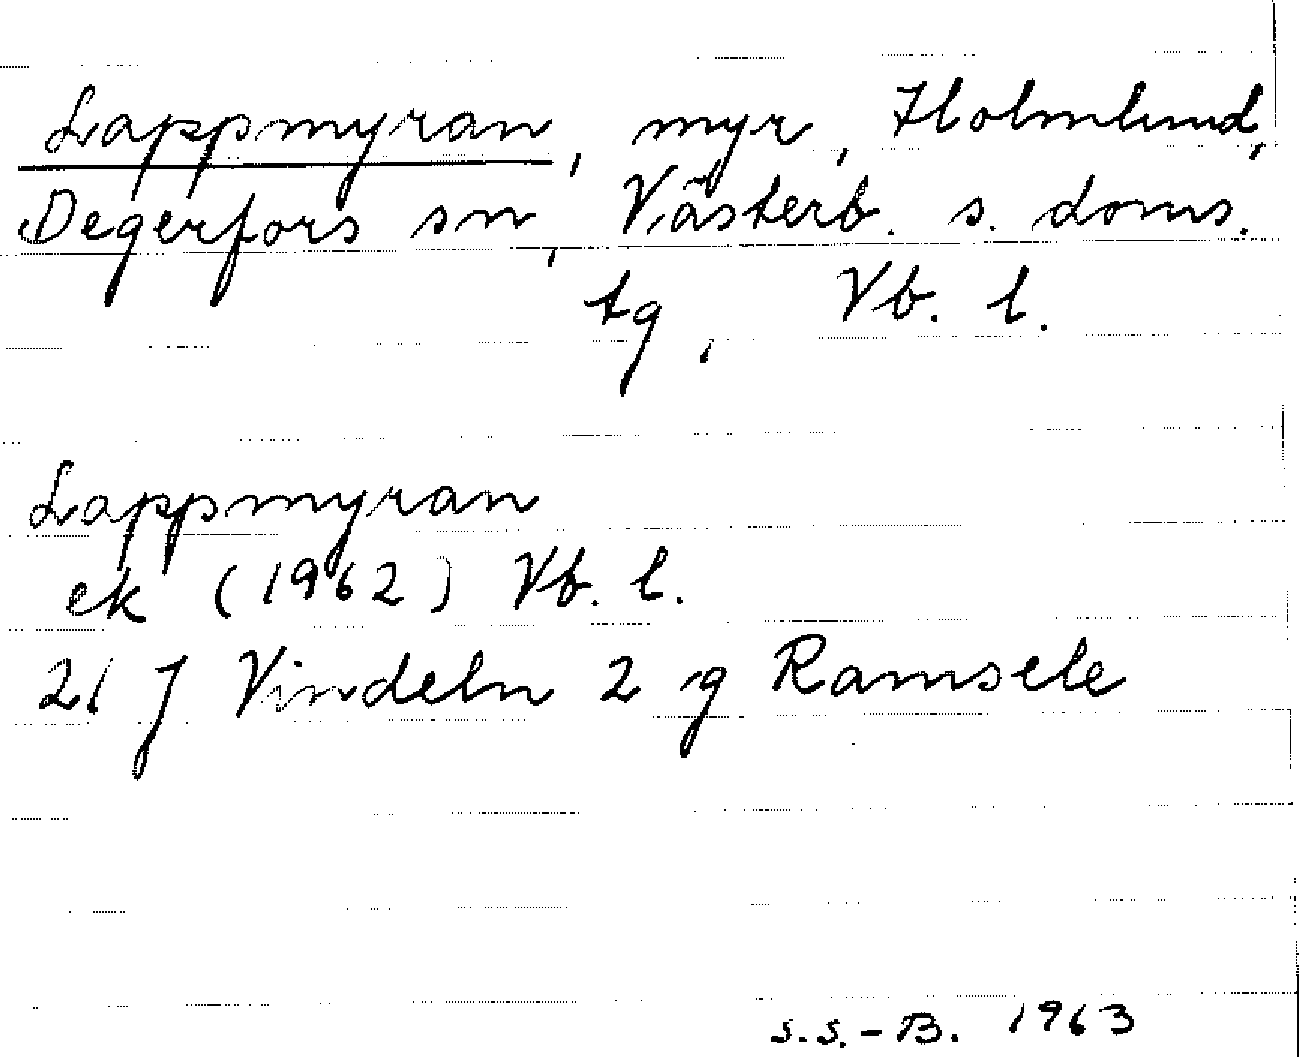 Lappmyran, myr, Holmlund,
Degerfors sn, Västerb. s. doms.
tg, Vb. l.
Lappmyran
ek (1962) Vb. l.
21 J Vindeln 2 g Ramsele
S.S.-B. 1963